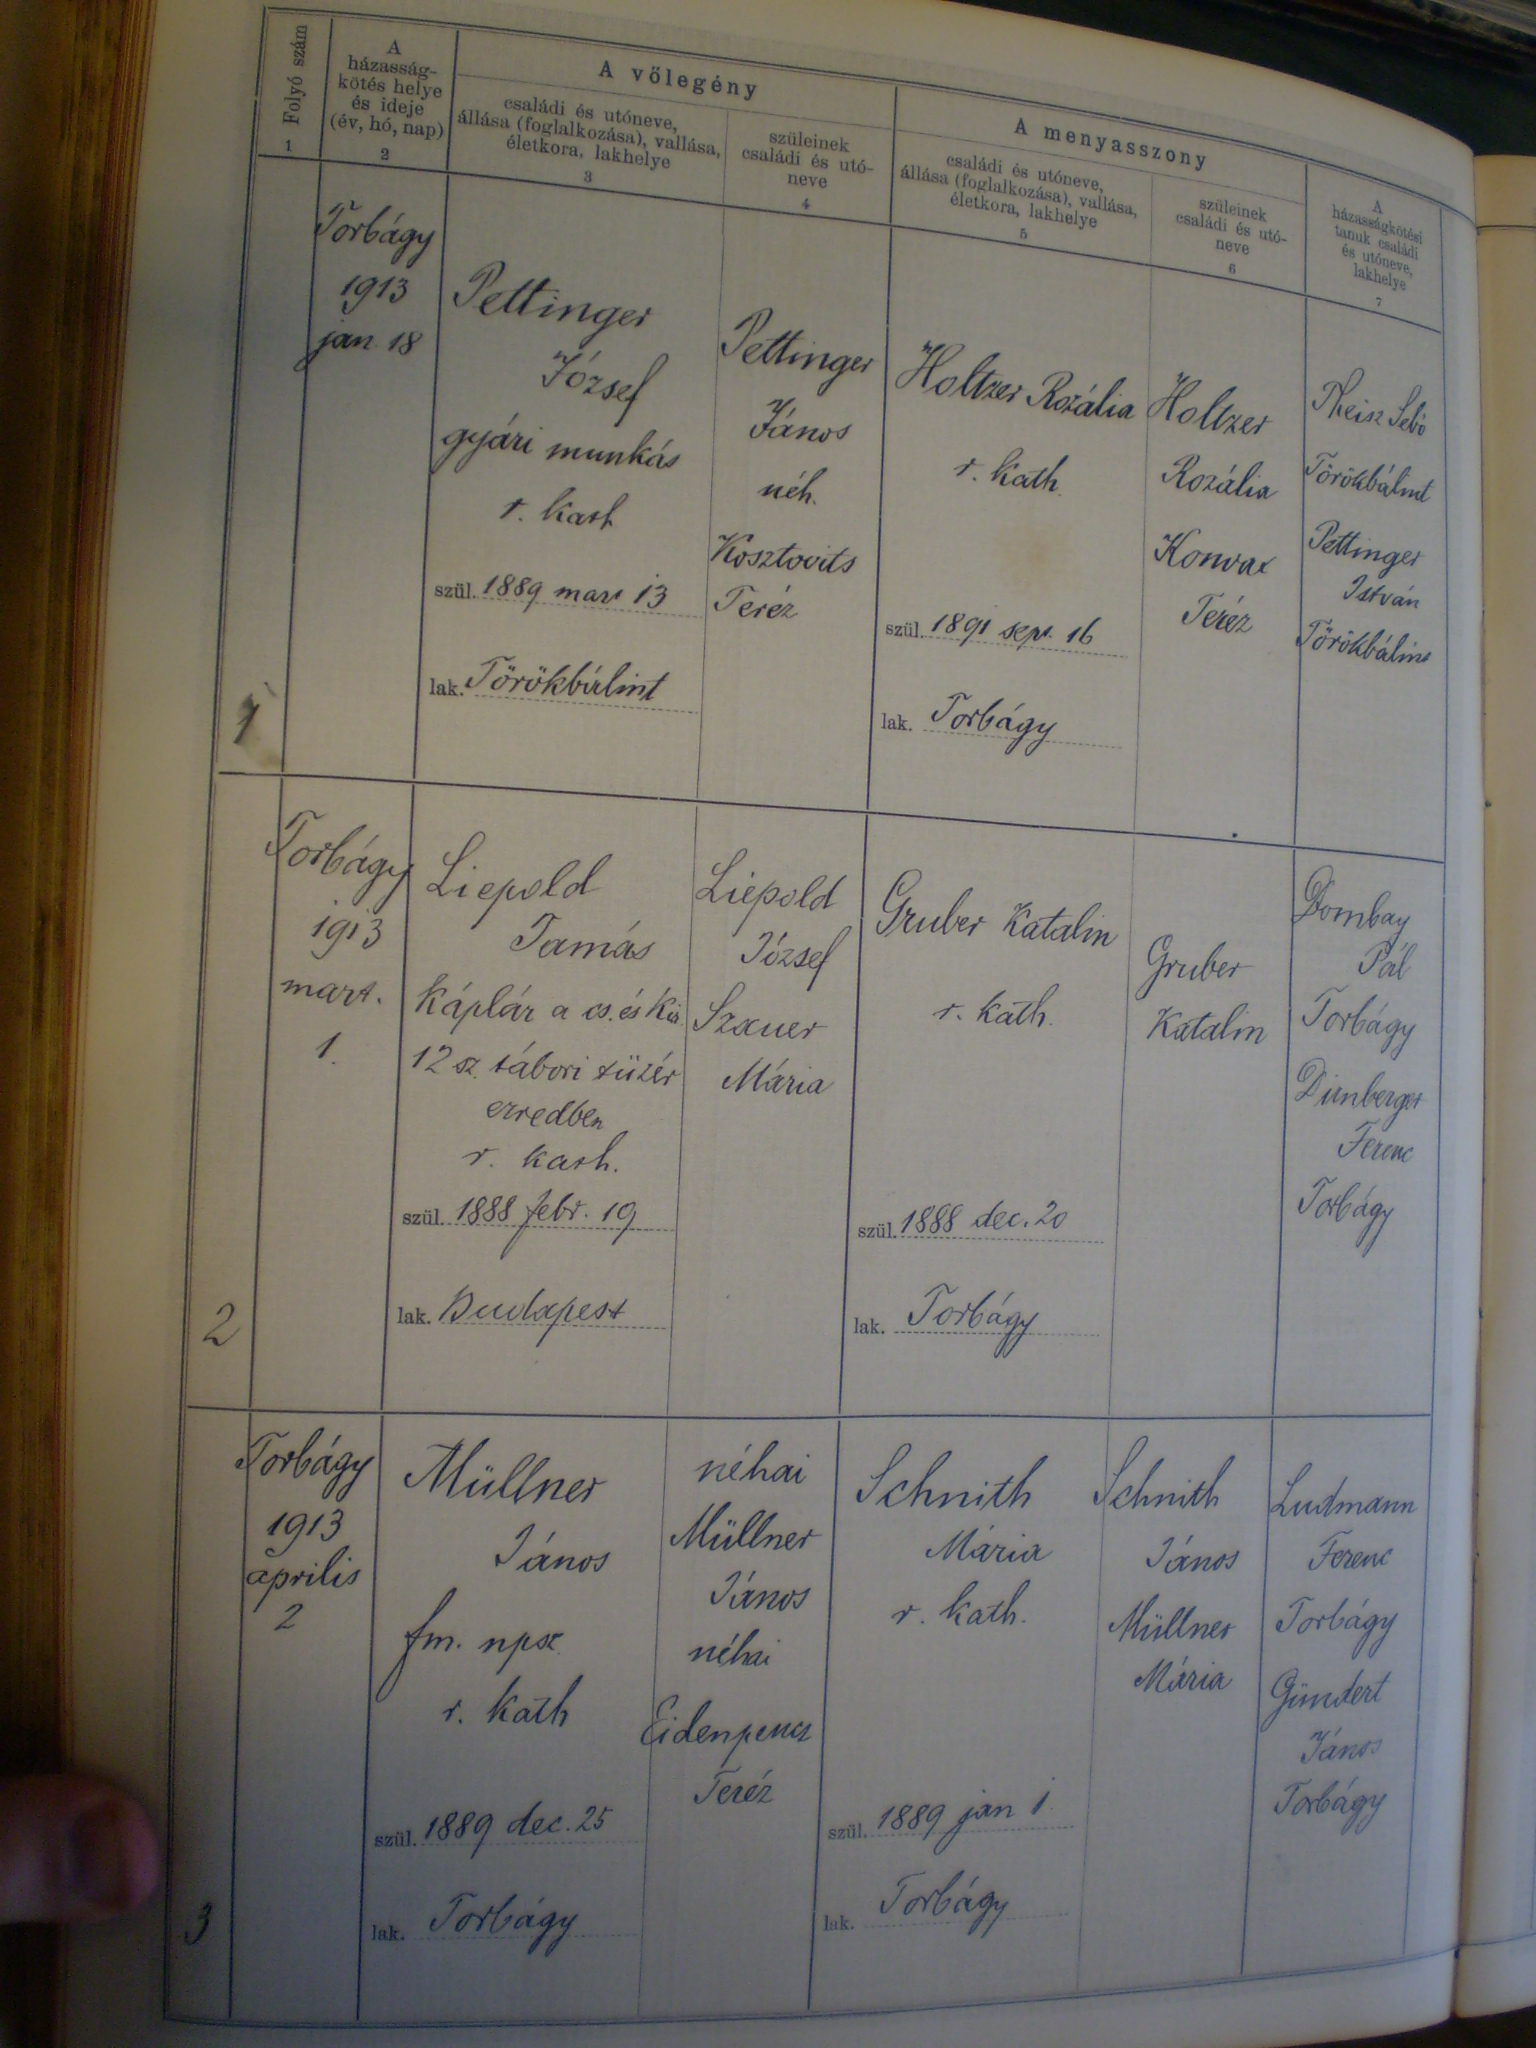 Folyó szám
1
A
házasság-
kötés helye
és ideje
(év, hó, nap)
2
A vőlegény
családi és utóneve,
állása (foglalkozása), vallása,
életkora, lakhelye
3
szüleinek
családi és utó-
neve
4
A menyasszony
családi és utóneve,
állása (foglalkozása), vallása,
életkora, lakhelye
5
szüleinek
családi és utó-
neve
6
A
házasságkötési
tanuk családi
és utóneve,
lakhelye
7
1
Torbágy
1913
jan 18
Pettinger
József
gyári munkás
r. kath
szül. 1889 mart 13
lak. Törökbálint
Pettinger
János
néh.
Kosztovits
Teréz
Holtzer Rozália
r. kath.
szül. 1891 sept. 16
lak. Torbágy
Holtzer
Rozália
Teréz
Theisz Sebő
Törökbálint
Pettinger
István
Törökbálint
2
Torbágy
1913
mart.
1.
Liepold
Tamás
káplár a cs. és kir.
12 sz. tábori tüzér
ezredben
r. kath.
szül. 1888 febr. 19
lak. Budapest
Liepold
József
Szauer
Mária
Gruber Katalin
r. kath.
szül. 1888 dec. 20
lak. Torbágy
Gruber
Katalin
Dombay
Pál
Torbágy
Dirnberger
Ferenc
Torbágy
3
Torbágy
1913
aprilis
2
Müllner
János
fm. npsz.
r. kath
szül. 1889 dec. 25
lak. Torbágy
néhai
Müllner
János
néhai
Eidenpencz
Teréz
Schnith
Mária
r. kath.
szül. 1889 jan 1.
lak. Torbágy
Schnith
János
Müllner
Mária
Ludmann
Ferenc
Torbágy
Gündert
János
Torbágy